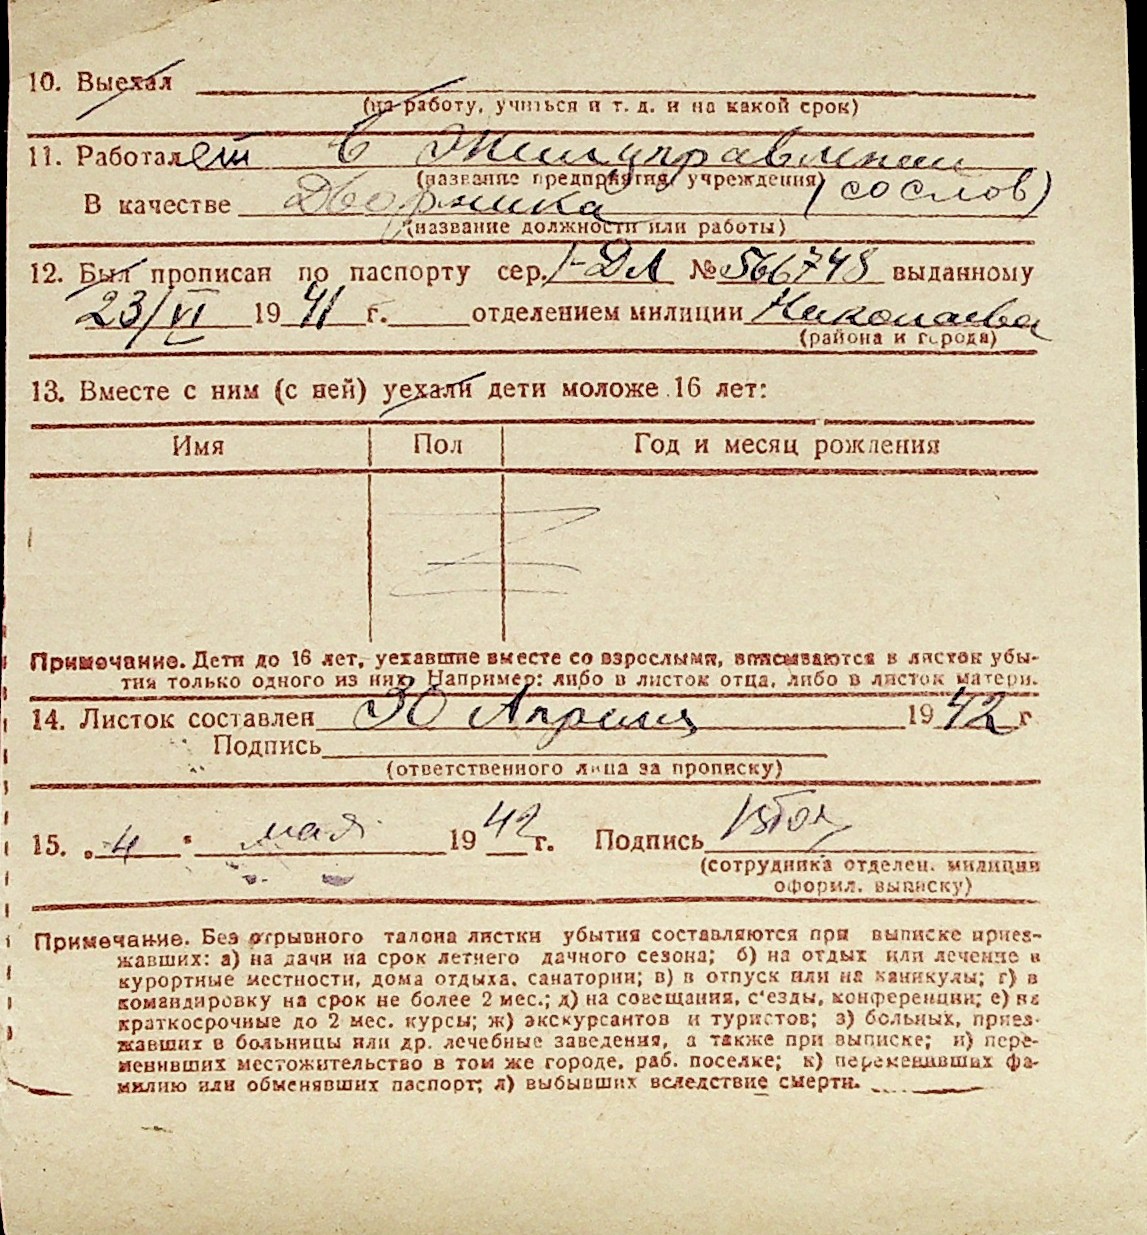 10. Выехал
(на работу, учиться и т. д. и на какой срок)
11. Работает в Жилуправлении
(название предприятия, учреждения) (со слов)
В качестве Дворника
(название должности или работы)
12. Был прописан по паспорту сер. I-ДЛ № 566748 выданному
23/VI 1941 г. отделением милиции Николаева
(района и города)
13. Вместе с ним (с ней) уехали дети моложе 16 лет:
Имя Пол Год и месяц рождения
Z
Примечание. Дети до 16 лет, уехавшие вместе со взрослыми, вписываются в листок убы-
тия только одного из них. Например: либо в листок отца, либо в листок матери.
14. Листок составлен 30 Апреля 1942 г
Подпись
(ответственного лица за прописку)
15. „4" мая 1942 г. Подпись
(сотрудника отделен. милиции
оформл. выписку)
Примечание. Без отрывного талона листки убытия составляются при выписке приез-
жавших: а) на дачи на срок летнего дачного сезона; б) на отдых или лечение в
курортные местности, дома отдыха, санатории; в) в отпуск или на каникулы; г) в
командировку на срок не более 2 мес.; д) на совещания, с'езды, конференции; е) на
краткосрочные до 2 мес. курсы; ж) экскурсантов и туристов; з) больных, приез-
жавших в больницы или др. лечебные заведения, а также при выписке; и) пере-
менивших местожительство в том же городе, раб. поселке; к) переменивших фа-
милию или обменявших паспорт; л) выбывших вследствие смерти.